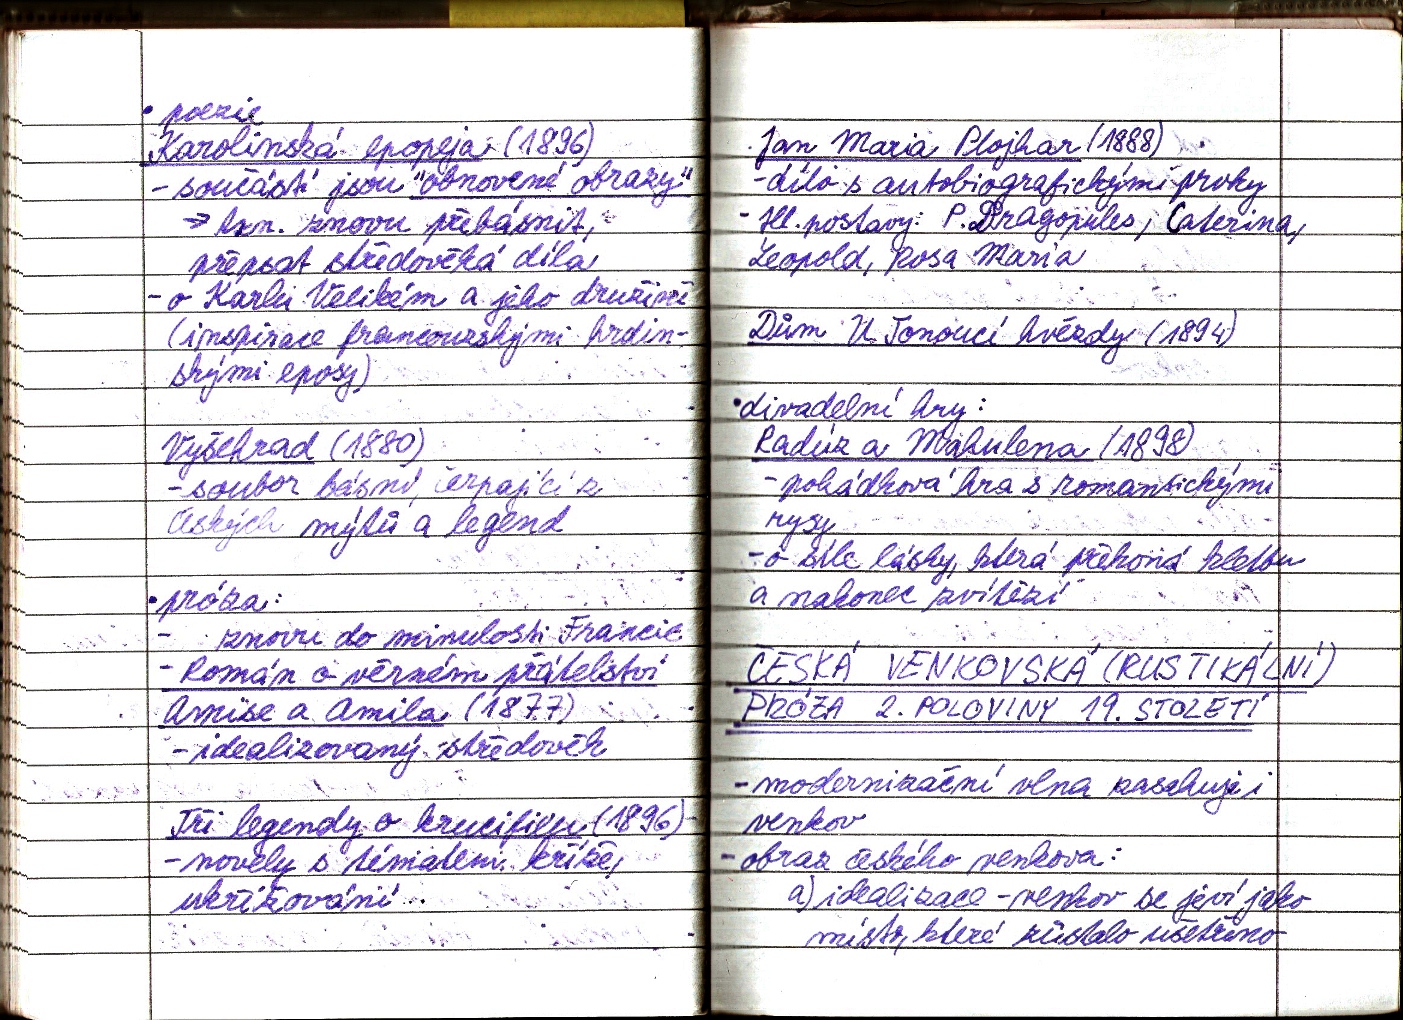 • poezie
Karolinská epopeja (1896)
- součástí jsou "obnovené obrazy"
⇒ tzn. znovu přebásnit,
přepsat středověká díla
- o Karlu Velikém a jeho družině
(inspirace francouzskými hrdin-
skými eposy)
Vyšehrad (1880)
- soubor básní, čerpající z
českých mýtů a legend
• próza:
- znovu do minulosti Francie
- Román o věrném přátelství
Amise a Amila (1877)
- idealizovaný středověk
Tři legendy o krucifixu (1896)
- novely s tématem kříže,
ukřižování
Jan Maria Plojhar (1888)
- dílo s autobiografickými prvky
- Hl. postavy: P. Dragopulos, Caterina,
Leopold, Rosa Maria
Dům U Tonoucí hvězdy (1894)
• divadelní hry:
Radúz a Mahulena (1898)
- pohádková hra s romantickými
rysy
- o síle lásky, která překoná kletbu
a nakonec zvítězí
ČESKÁ VENKOVSKÁ (RUSTIKÁLNÍ)
PRÓZA 2. POLOVINY 19. STOLETÍ
- modernizační vlna zasahuje i
venkov
- obraz českého venkova:
a) idealizace - venkov se jeví jako
místo, které zůstalo ušetřeno